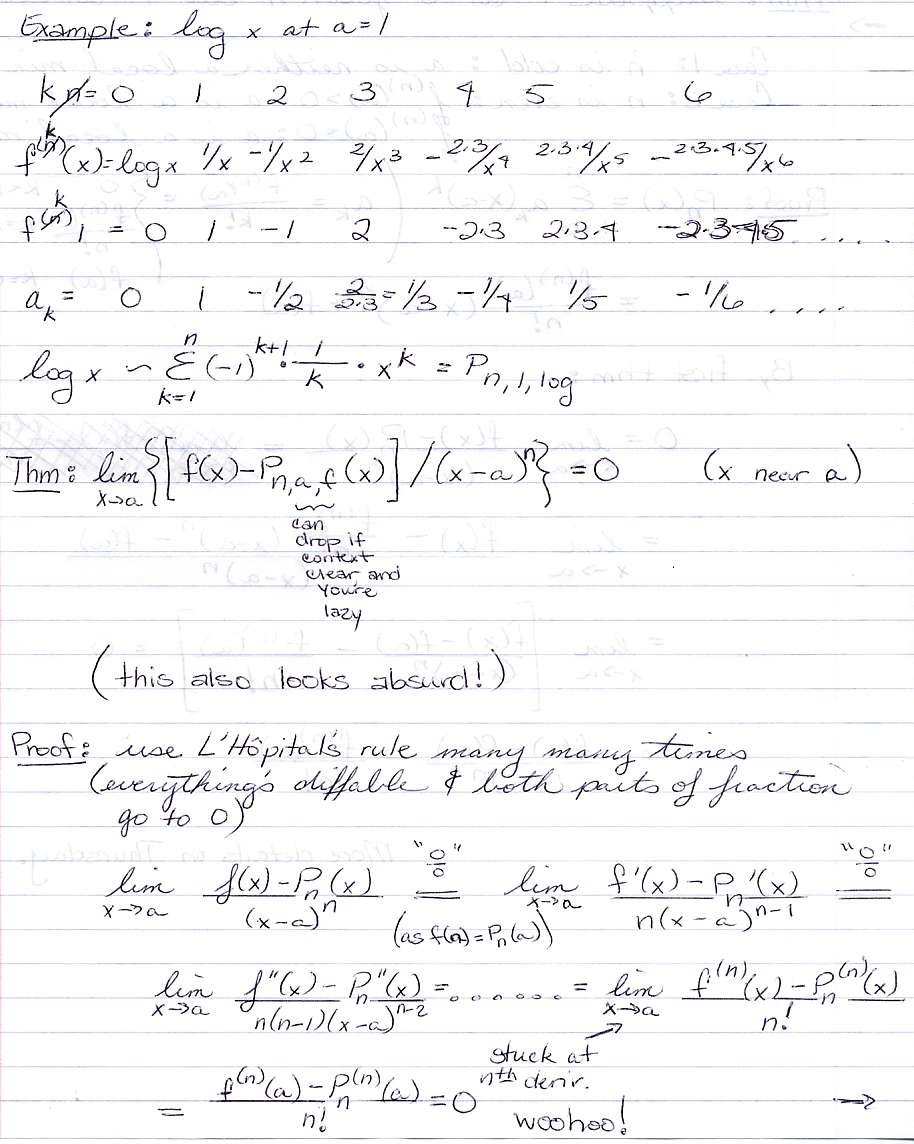 Example: log x at a=1
k n= 0 1 2 3 4 5 6
f^(n) k (x)= log x 1/x -1/x² 2/x³ -2·3/x⁴ 2·3·4/x⁵ -2·3·4·5/x⁶
f^(n) k 1 = 0 1 -1 2 -2·3 2·3·4 -2·3·4·5 ....
a_k = 0 1 -1/2 2/2·3=1/3 -1/4 1/5 -1/6 ....
log x ~ Σ_{k=1}^{n} (-1)^{k+1} · 1/k · x^k = P_{n,1,log}
Thm: lim_{x→a} {[f(x)-P_{n,a,f}(x)]/(x-a)^n} = 0 (x near a)
can
drop if
context
clear and
you're
lazy
(this also looks absurd!)
Proof: use L'Hôpital's rule many many times
(everything's diffable & both parts of fraction
go to 0)
lim_{x→a} f(x)-P_n(x)/(x-a)^n "0/0" = (as f(a)=P_n(a)) lim_{x→a} f'(x)-P_n'(x)/n(x-a)^{n-1} "0/0" =
lim_{x→a} f''(x)-P_n''(x)/n(n-1)(x-a)^{n-2} =....... = lim_{x→a} f^(n)(x)-P_n^(n)(x)/n!
stuck at
nth deriv.
= f^(n)(a)-P_n^(n)(a)/n! = 0 woohoo! →